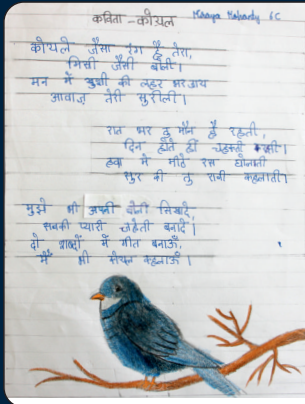 कविता - कोयल
Maraya Mohanty 6C
कोयले जैसा रंग है तेरा,
मिसी जैसी बोली।
मन में खुशी की लहर भर जाय
आवाज़ तेरी सुरीली।
रात भर तू मौन है रहती,
दिन होते ही चहकती
हवा में मीठे रस घोलती
सुर की तू रानी कहलाती।
मुझे भी अपनी बोली सिखादे,
सबकी प्यारी चहेती बनादे।
दो शब्दों में गीत बनाऊँ,
मैं भी कोयल कहलाऊँ।